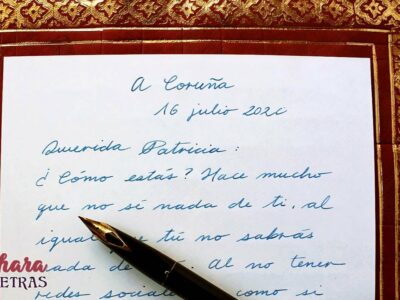 A Coruña
16 julio 2020
Querida Patricia:
¿Cómo estás? Hace mucho
que no sí nada de ti, al
igual que tú no sabrás
nada de mí. Al no tener
redes sociales como si
hara
ETRAS